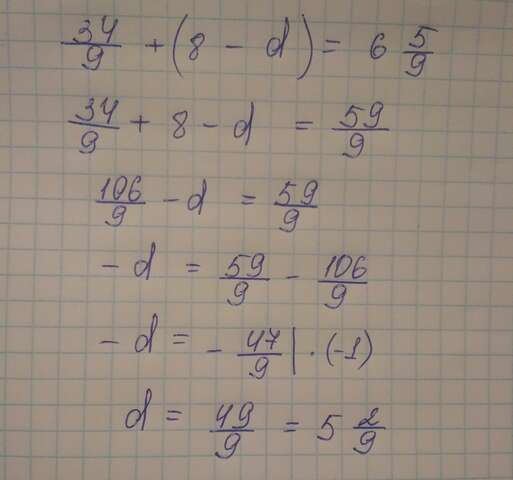 34/9 + (8 - d) = 6 5/9
34/9 + 8 - d = 59/9
106/9 - d = 59/9
- d = 59/9 - 106/9
- d = - 47/9 | · (-1)
d = 49/9 = 5 2/9